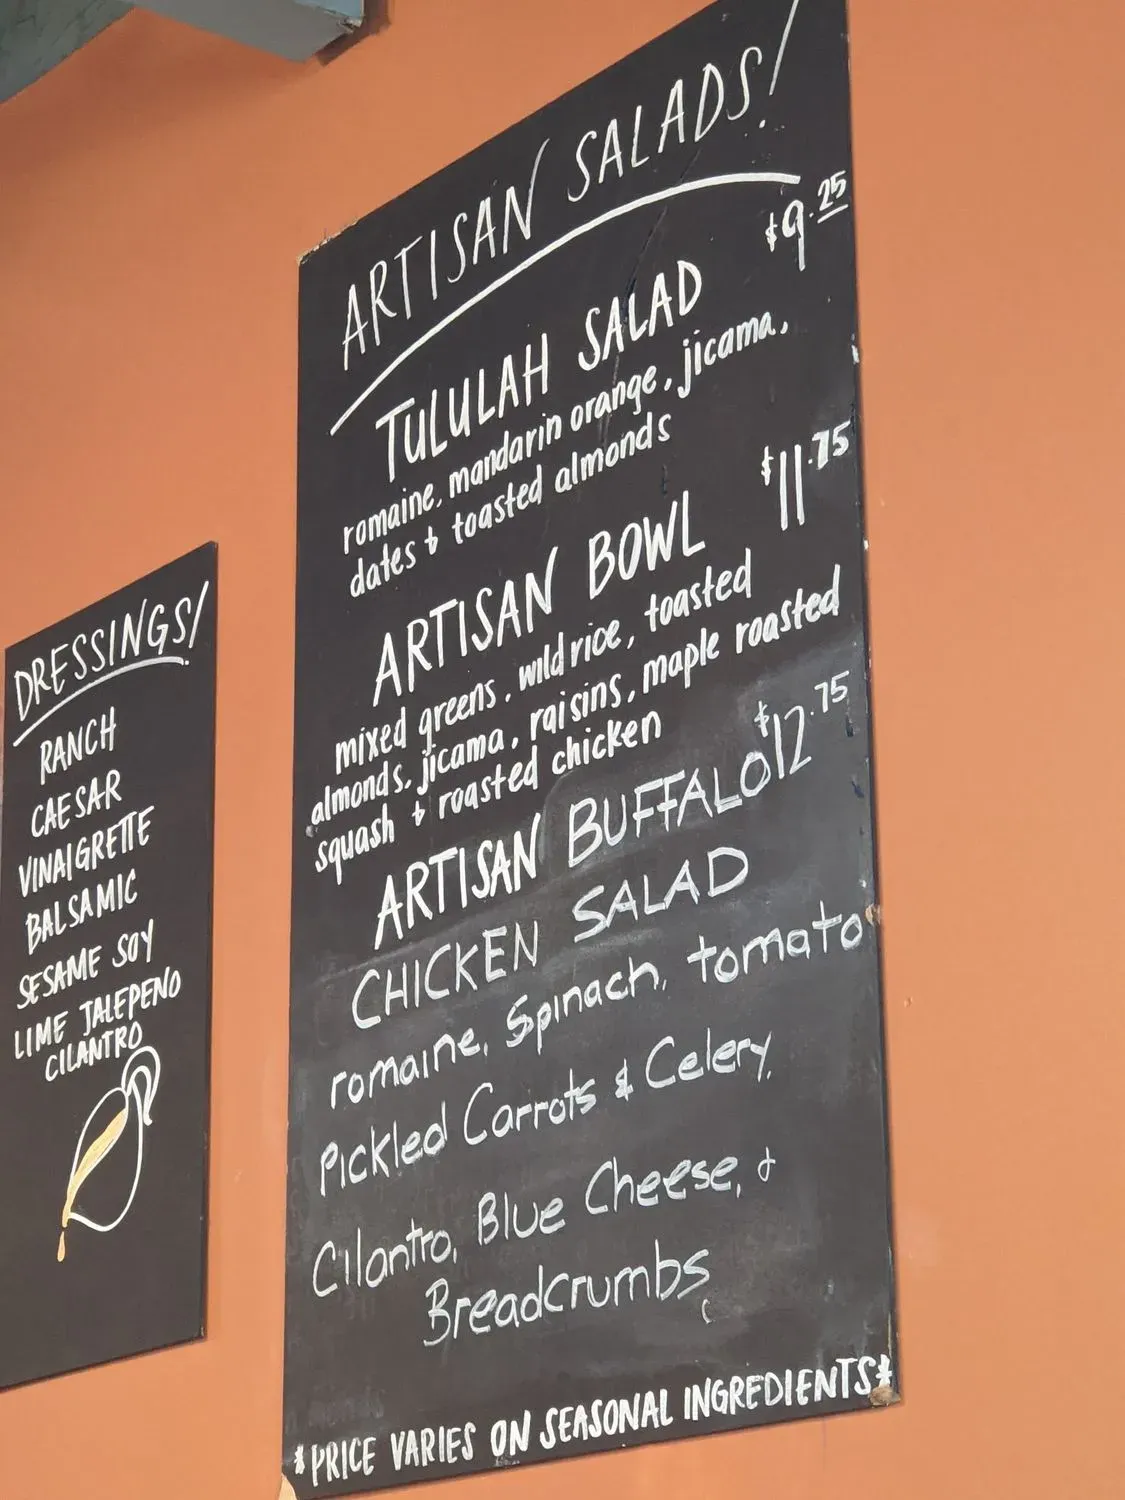 ARTISAN SALADS!
$9.25
TULULAH SALAD
romaine, mandarin orange, jicama,
dates & toasted almonds
$11.75
ARTISAN BOWL
mixed greens, wild rice, toasted
almonds, jicama, raisins, maple roasted
squash & roasted chicken
$12.75
ARTISAN BUFFALO
CHICKEN SALAD
romaine, Spinach, tomato
Pickled Carrots & Celery,
Cilantro, Blue Cheese, &
Breadcrumbs
*PRICE VARIES ON SEASONAL INGREDIENTS*
DRESSINGS!
RANCH
CAESAR
VINAIGRETTE
BALSAMIC
SESAME SOY
LIME JALEPENO
CILANTRO